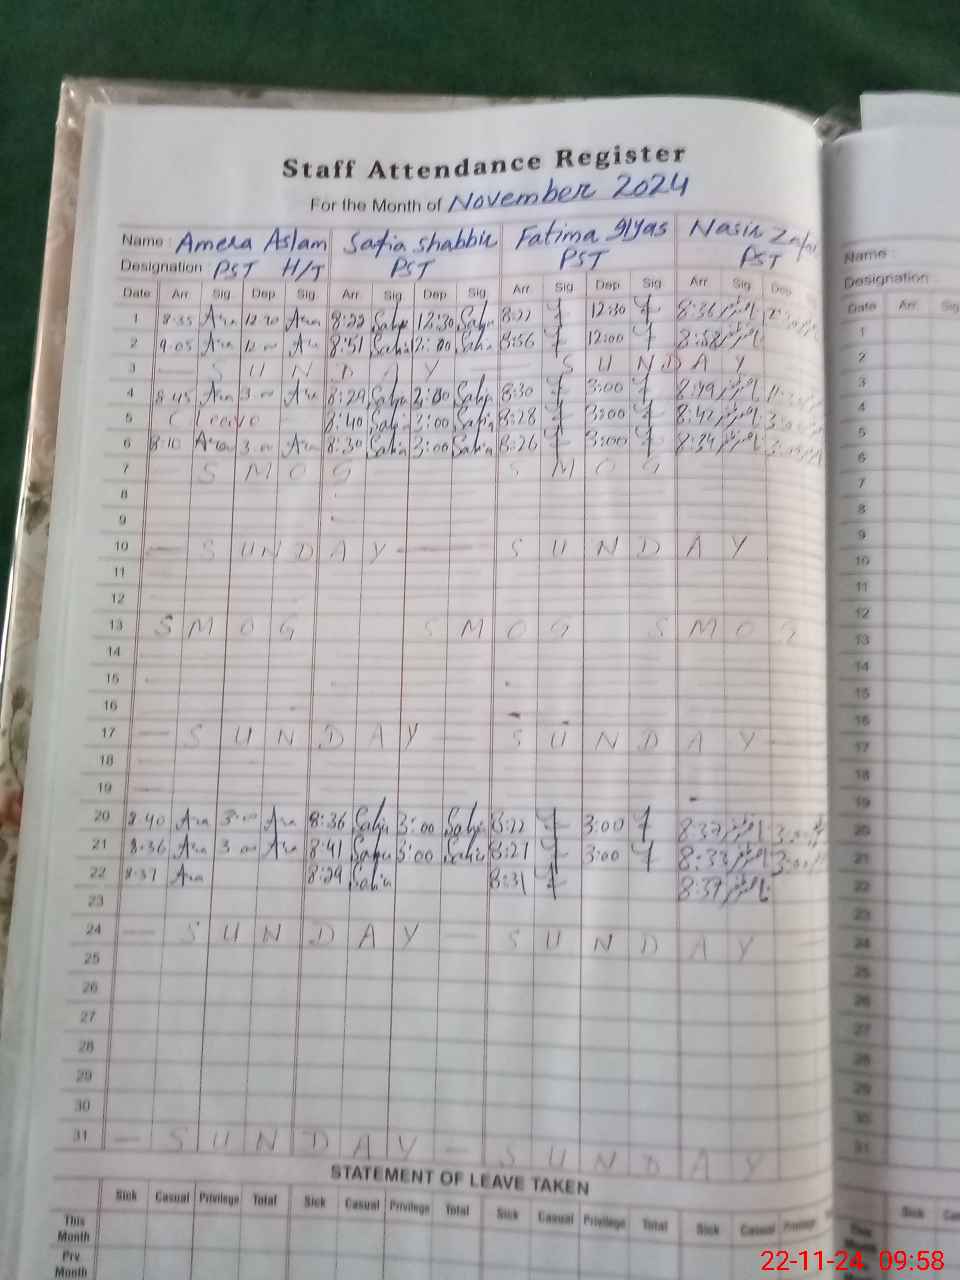 Staff Attendance Register
For the Month of November 2024
Name : Amera Aslam Safia Shabbir Fatima Ilyas Nasir Zafar
Designation PST H/T PST PST PST
Date Arr. Sig. Dep Sig. Arr. Sig. Dep Sig. Arr Sig. Dep Sig. Arr. Sig. Dep
1 8:35 12:30 8:22 12:30 8:22 12:30 8:36
2 9:05 12:00 8:51 12:00 8:56 12:00 8:58
3 SUNDAY SUNDAY
4 8:45 3:00 8:29 8:30 3:00 8:49
5 Leave 8:40 3:00 8:28 3:00 8:42
6 8:10 3:00 8:30 3:00 8:26 3:00 8:34
7 SMOG SMOG
8
9
10 SUNDAY SUNDAY
11
12
13 SMOG SMOG SMOG
14
15
16
17 SUNDAY SUNDAY
18
19
20 8:40 3:00 8:36 3:00 8:22 3:00 8:37
21 8:36 3:00 8:41 3:00 8:21 3:00 8:33
22 8:37 8:29 8:31 8:39
23
24 SUNDAY SUNDAY
25
26
27
28
29
30
31 SUNDAY SUNDAY
STATEMENT OF LEAVE TAKEN
Sick Casual Privilege Total Sick Casual Privilege Total Sick Casual Privilege Total Sick Casual Privilege
This Month
Prv. Month
Name :
Designation
Date Arr. Sig
1
2
3
4
5
6
7
8
9
10
11
12
13
14
15
16
17
18
19
20
21
22
23
24
25
26
27
28
29
30
31
Sick
22-11-24 09:58